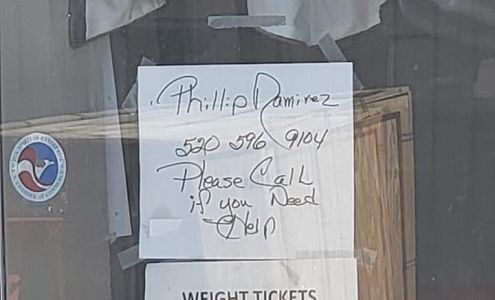 Phillip Ramirez
520 596 9104
Please Call
if you Need
Help
WEIGHT TICKETS